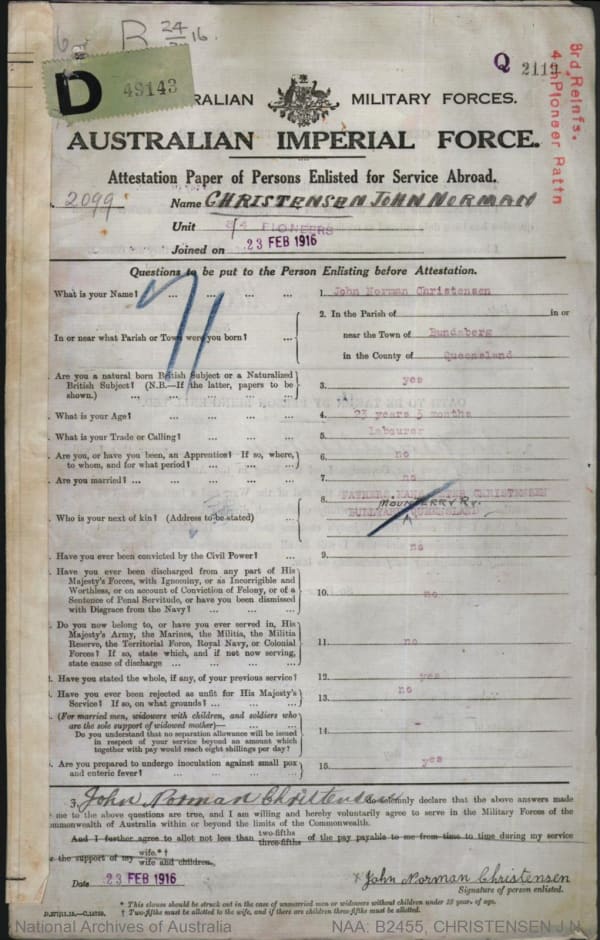 B 24 16
Q 2119
3rd Reinfs.
4th Pioneer Battn
D 49143
RALIAN MILITARY FORCES.
AUSTRALIAN IMPERIAL FORCE.
Attestation Paper of Persons Enlisted for Service Abroad.
2099 Name CHRISTENSEN JOHN NORMAN
Unit 3/4 PIONEERS
Joined on 23 FEB 1916
Questions to be put to the Person Enlisting before Attestation.
What is your Name? ... ... ... ... 1. John Norman Christensen
In or near what Parish or Town were you born? ... 2. In the Parish of in or
near the Town of Bundaberg
in the County of Queensland
Are you a natural born British Subject or a Naturalized
British Subject? (N.B.—If the latter, papers to be
shown.) ... ... ... ... 3. yes
What is your Age? ... ... ... ... 4. 23 years 5 months
What is your Trade or Calling? ... ... ... 5. Labourer
Are you, or have you been, an Apprentice? If so, where,
to whom, and for what period? ... ... ... 6. no
Are you married? ... ... ... ... 7. no
Who is your next of kin? (Address to be stated) ... 8. FATHER: CHRISTENSEN
MOUNT PERRY RY.
QUEENSLAND
Have you ever been convicted by the Civil Power? ... 9. no
Have you ever been discharged from any part of His
Majesty's Forces, with Ignominy, or as Incorrigible and
Worthless, or on account of Conviction of Felony, or of a
Sentence of Penal Servitude, or have you been dismissed
with Disgrace from the Navy? ... ... ... 10. no
Do you now belong to, or have you ever served in, His
Majesty's Army, the Marines, the Militia, the Militia
Reserve, the Territorial Force, Royal Navy, or Colonial
Forces? If so, state which, and if not now serving,
state cause of discharge ... ... ... 11. no
Have you stated the whole, if any, of your previous service? 12. yes
Have you ever been rejected as unfit for His Majesty's
Service? If so, on what grounds? ... ... ... 13. no
(For married men, widowers with children, and soldiers who
are the sole support of widowed mother)—
Do you understand that no separation allowance will be issued
in respect of your service beyond an amount which
together with pay would reach eight shillings per day? 14. -
Are you prepared to undergo inoculation against small pox
and enteric fever? ... ... ... ... 15. yes
3. John Norman Christensen do solemnly declare that the above answers made
me to the above questions are true, and I am willing and hereby voluntarily agree to serve in the Military Forces of the
mmonwealth of Australia within or beyond the limits of the Commonwealth.
And I further agree to allot not less than two-fifths three-fifths of the pay payable to me from time to time during my service
the support of my wife.*† wife and children.
Date 23 FEB 1916 x John Norman Christensen
Signature of person enlisted.
* This clause should be struck out in the case of unmarried men or widowers without children under 18 years of age.
† Two-fifths must be allotted to the wife, and if there are children three-fifths must be allotted.
National Archives of Australia NAA: B2455, CHRISTENSEN J N